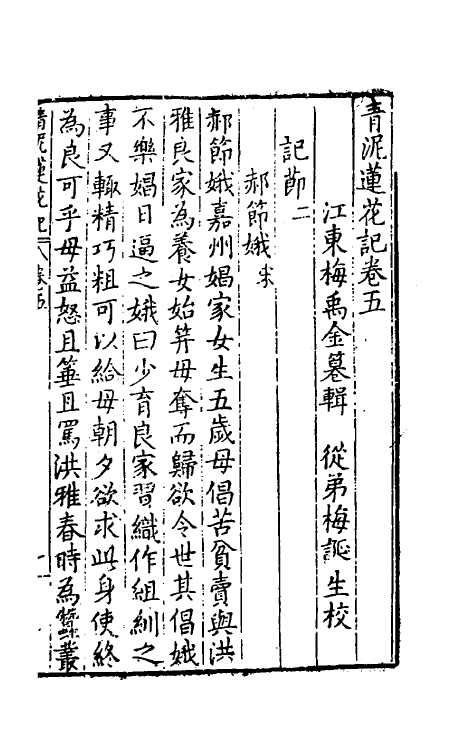 青泥蓮花記卷五
江東梅禹金纂輯　從弟梅誕生校
記節二
郝節娥宋
郝節娥嘉州娼家女生五歲母倡苦貧賣與洪
雅良家為養女始笄母奪而歸欲令世其倡娥
不樂娼日逼之娥曰少育良家習織作組紃之
事又輒精巧粗可以給母朝夕欲求此身使終
為良可乎母益怒且箠且罵洪雅春時為蠶叢
青泥蓮花記 卷五 一